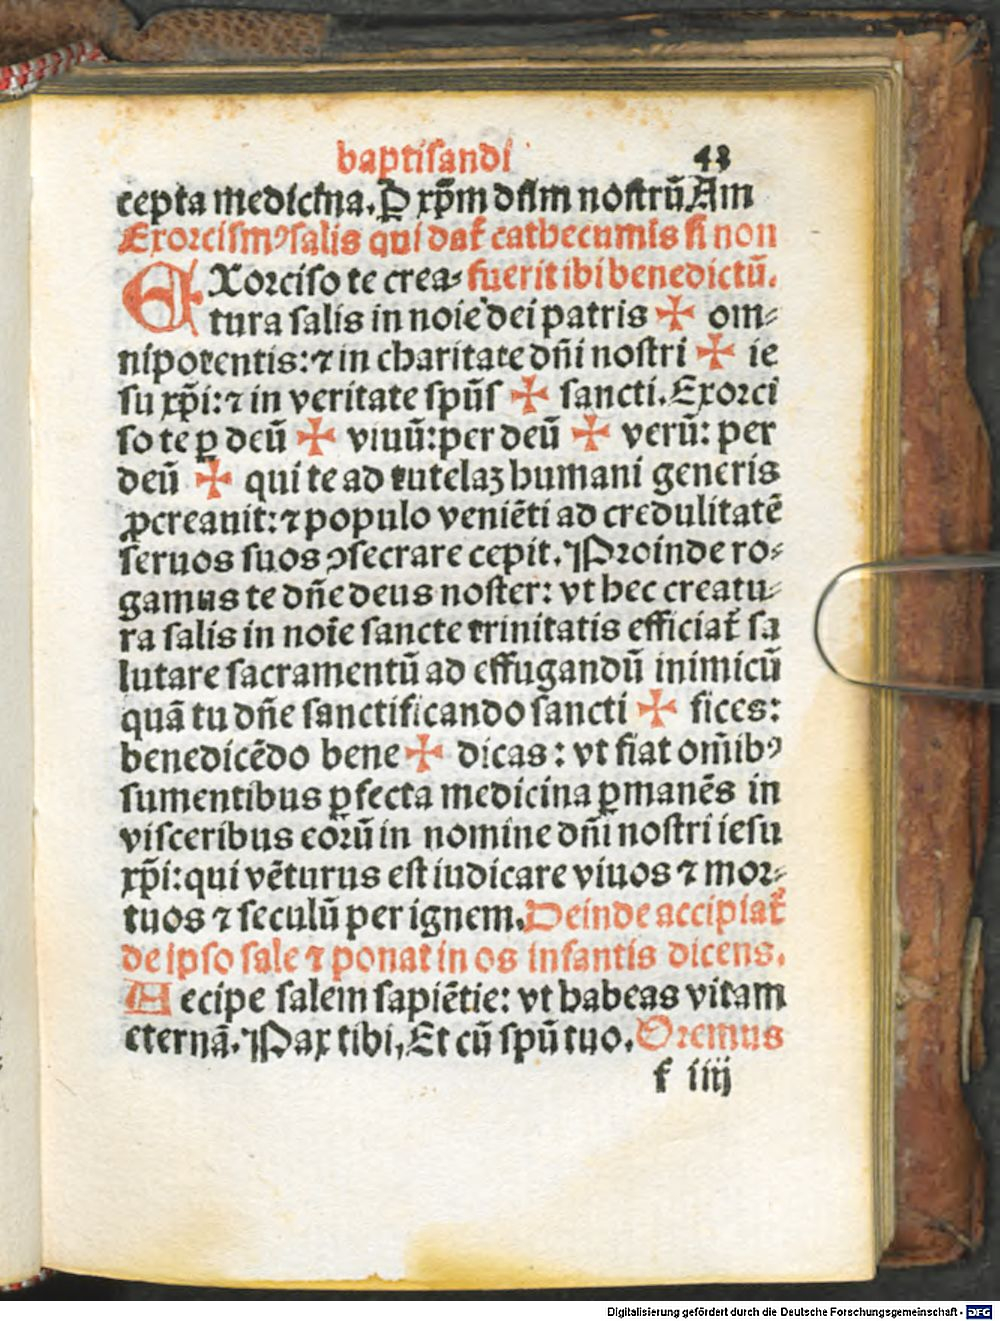 baptisandi 43
cepta medicina. P xp̄m dn̄m nostrū Am
Exorcismꝰ salis qui dat᷑ cathecumis si non
EXorciso te crea⸗ fuerit ibi benedictū.
tura salis in noīe dei patris ✠ om⸗
nipotentis: ⁊ in charitate dn̄i nostri ✠ ie
su xp̄i: ⁊ in veritate spūs ✠ sancti. Exorci
so te ꝑ deū ✠ viuū: per deū ✠ verū: per
deū ✠ qui te ad tutelaꝫ humani generis
ꝓcreauit: ⁊ populo veniēti ad credulitatē
seruos suos ꝯsecrare cepit. Proinde ro⸗
gamus te dn̄e deus noster: vt hec creatu⸗
ra salis in noīe sancte trinitatis efficiat᷑ sa
lutare sacramentū ad effugandū inimicū
quā tu dn̄e sanctificando sancti ✠ fices:
benedicēdo bene ✠ dicas: vt fiat om̄ibꝰ
sumentibus ꝑfecta medicina ꝑmanēs in
visceribus eorū in nomine dn̄i nostri iesu
xp̄i: qui vēturus est iudicare viuos ⁊ mor⸗
tuos ⁊ seculū per ignem. Deinde accipiat᷑
de ipso sale ⁊ ponat in os infantis dicens.
Aecipe salem sapiētie: vt habeas vitam
eternā. Pax tibi, Et cū spū tuo. Oremus
f iiij
Digitalisierung gefördert durch die Deutsche Forschungsgemeinschaft - DFG